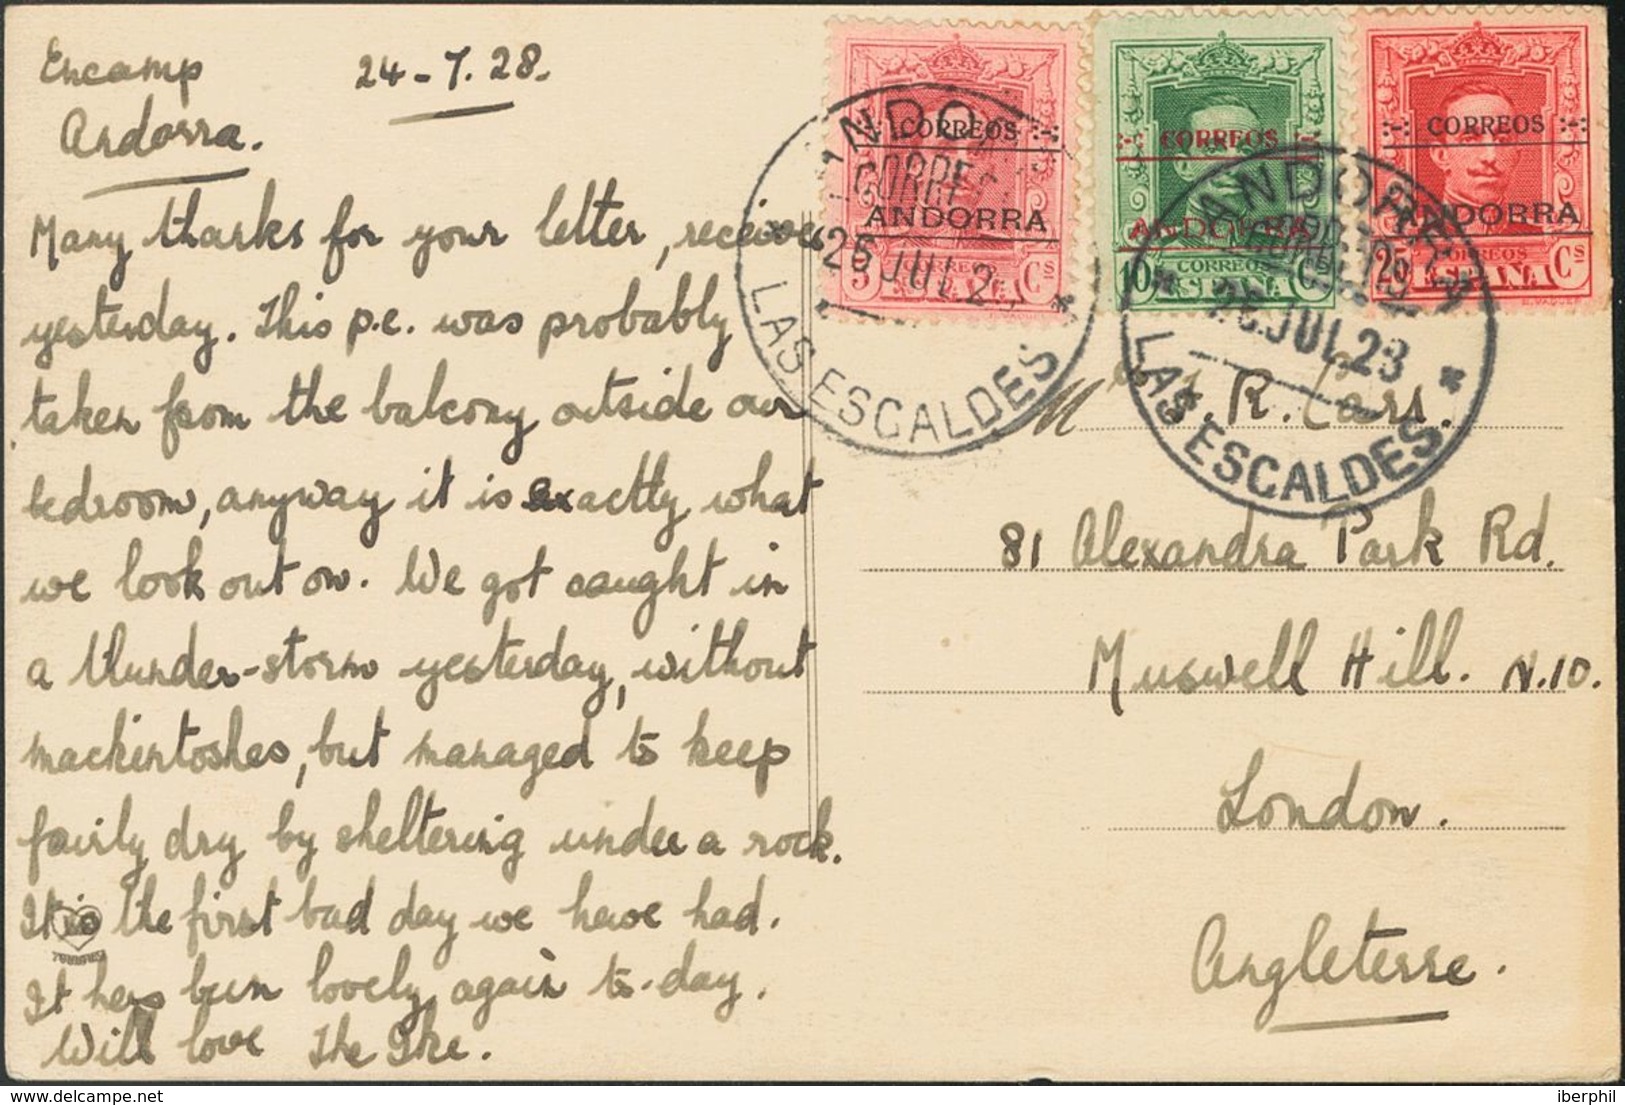 Encamp
Andorra.
24-7.28.
Many thanks for your letter, received
yesterday. This p.c. was probably
taken from the balcony outside our
bedroom, anyway it is exactly what
we look out on. We got caught in
a thunder-storm yesterday, without
mackintoshes, but managed to keep
fairly dry by sheltering under a rock.
It is the first bad day we have had.
It has been lovely again to-day.
With love The
CORREOS
ANDORRA
5 CORREOS Cs
ESPAÑA
CORREOS
ANDORRA
10 CORREOS Cs
ESPAÑA
CORREOS
ANDORRA
ESPAÑA Cs
ANDORRA
CORREOS
26 JUL.2
LAS ESCALDES
ANDORRA
26.JUL.23
LAS ESCALDES
R. Carr.
81 Alexandra Park Rd.
Muswell Hill. N.10.
London.
Angleterre.
iberphil